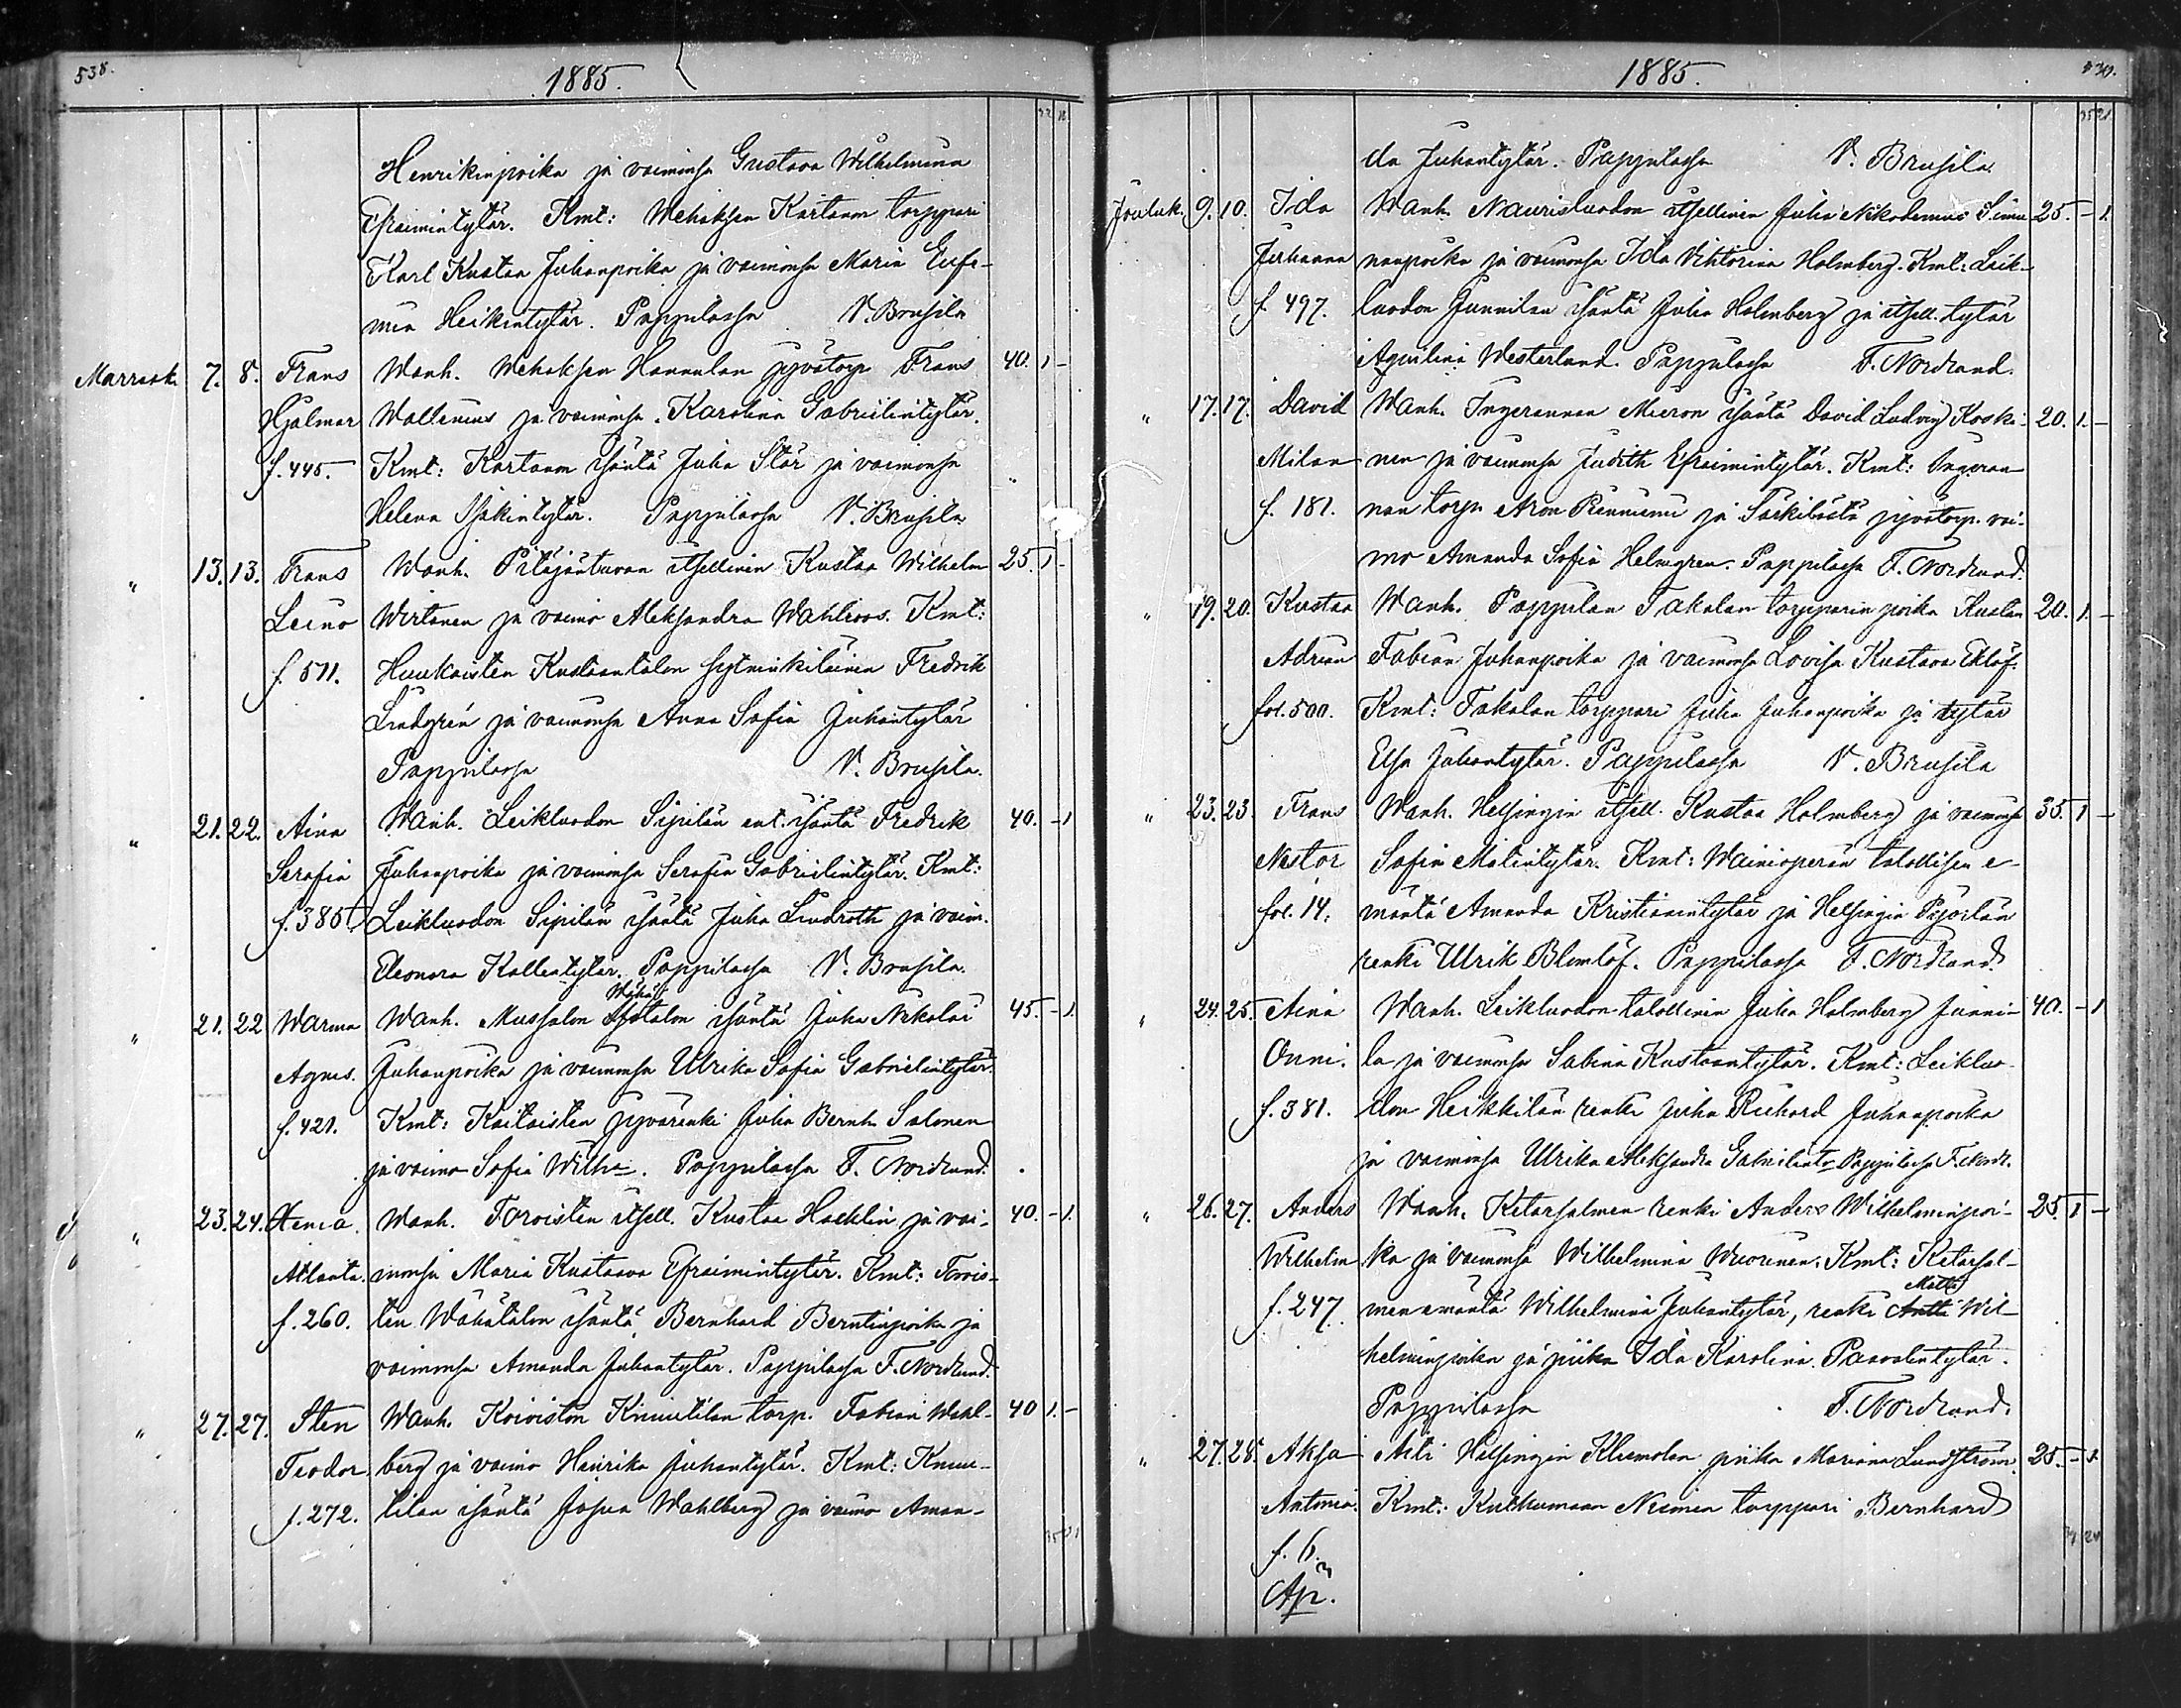 538.
1885.
Henrikinpoika ja vaimonsa Gustava Wilhelmina
Efraimintytär. Kmt: Mehoksen Kartanon torppari
Karl Kustaa Juhanpoika ja vaimonsa Maria Eufe-
mia Heikintytär. Pappilassa V. Brusila
Marrask. 7. 8. Frans Wanh. Mehoksen Hannulan jyvätorp. Frans 40. 1 -
Hjalmar Wallenius ja vaimonsa Karolina Gabrielintytär.
f. 445. Kmt: Kartanon isäntä Juha Stör ja vaimonsa
Helena Isakintytär. Pappilassa V. Brusila
" 13. 13. Frans Wanh. Pitäjäntuvan itsellinen Kustaa Wilhelm 25. 1 -
Leino Wirtanen ja vaimo Aleksandra Wahlroos. Kmt:
f. 571. Huukaisten Kustaantalon sytminkiläinen Fredrik
Lindgrén ja vaimonsa Anna Sofia Juhantytär
Pappilassa V. Brusila.
" 21. 22. Aina Wanh. Leikluodon Sipilän ent. isäntä Fredrik 40. - 1
Serafia Juhanpoika ja vaimonsa Serafia Gabrielintytär. Kmt:
f. 385 Leikluodon Sipilän isäntä Juha Lindroth ja vaim.
Eleonora Kallentytär. Pappilassa V. Brusila.
Wähä
" 21. 22 Warma Wanh. Mussalon isäntä Juha Nikolai 45. - 1.
Agnes. Juhanpoika ja vaimonsa Ulrika Sofia Gabrielintytär.
f. 421. Kmt: Kaitaisten jyvärenki Juha Bernh. Salmen
ja vaimo Sofia Wilh. Pappilassa F. Nordlund.
" 23. 24. Xenia. Wanh. Toroisten itsell. Kustaa Haeklin ja vai- 40. - 1.
Atlanta. monsa Maria Kustaava Efraimintytär. Kmt: Torois-
f. 260. ten Wähätalon isäntä Bernhard Berntinpoika ja
vaimonsa Amanda Juhantytär. Pappilassa F. Nordlund.
" 27. 27. Sten Wanh. Koiviston Knuutilan torp. Fabian Wahl- 40 1. -
Teodor berg ja vaimo Henrika Juhantytär. Kmt: Knuu-
f. 272. tilan isäntä Josua Wahlberg ja vaimo Aman-
1885.
da Juhantytär. Pappilassa V. Brusila
Jouluk. 9. 10. Ida Wanh. Naurisluodon itsellinen Juha Nikodemus Simu 25. - 1.
Juhanna nanpoika ja vaimonsa Ida Viktorina Holmberg. Kmt: Leik-
f. 497. luodon Junnilan isäntä Juha Holmberg ja itsell. tytär
Aqvilina Westerlund. Pappilassa F. Nordlund.
" 17. 17. David Wanh. Ingerannan Mieron isäntä David Ludvig Koski- 20. 1. -
Milan nen ja vaimonsa Judith Efraimintytär. Kmt: Ingeran
f. 181. nan torp. Aron Penniemi ja Särkilästä jyvätorp. vai-
mo Amanda Sofia Helmgren. Pappilassa F. Nordlund.
" 19. 20. Kustaa Wanh. Pappilan Takalan torpparin poika Kustaa 20. 1. -
Adrian Fabian Juhanpoika ja vaimonsa Lovisa Kustava Eklöf.
fol. 500. Kmt: Takalan torppari Juha Juhanpoika ja tytär
Elsa Juhantytär. Pappilassa V. Brusila
" 23. 23. Frans Wanh. Helsingin itsell. Kustaa Holmberg ja vaimonsa 35. 1 -
Nestor Sofia Matintytär. Kmt: Wainioperän talollisen e-
fol. 14. mäntä Amanda Kristianintytär ja Helsingin Pijorlan
renki Ulrik Blomlöf. Pappilassa F. Nordlund
" 24. 25. Aina Wanh. Leikluodon talollinen Juha Holmberg Junni- 40. - 1
Onni. la ja vaimonsa Sabina Kustaantytär. Kmt: Leikluo-
f. 381. don Heikkilän renki Juha Richard Juhanpoika
ja vaimonsa Ulrika Aleksandra Gabrielint. Pappilassa F. Nordl.
" 26. 27. Anders Wanh. Ketarsalmen renki Anders Wilhelminpoi- 25. 1 -
Wilhelm ka ja vaimonsa Wilhelmina Wuorinen. Kmt: Ketarsal-
Matti
f. 247. men emäntä Wilhelmina Juhantytär, renki Antti Wil-
helminpoika ja piika Ida Karolina Paavalintytär.
Pappilassa F. Nordlund.
" 27. 28. Aksa Äiti Helsingin Klemolan piika Mariana Lundström. 25. - 1.
Antonia. Kmt: Kuthumaan Niemien torppari Bernhard
f. 6.
Äp.